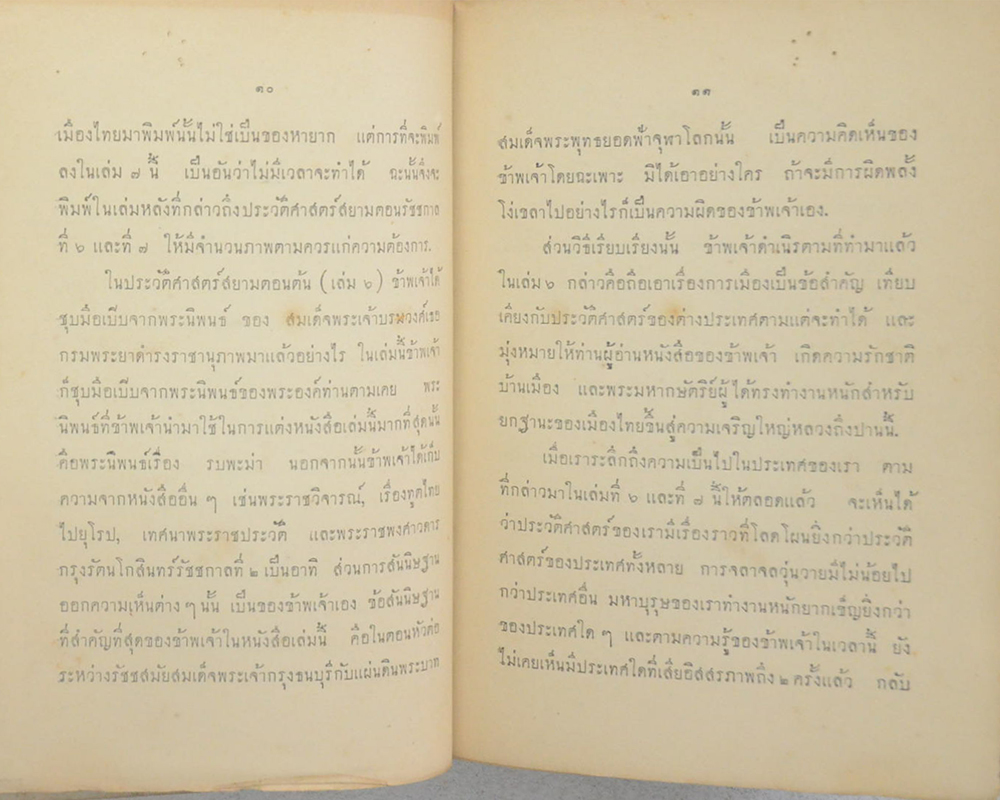 ๑๐
เมืองไทยมาพิมพ์นั้นไม่ใช่เป็นของหายาก แต่การที่จะพิมพ์
ลงในเล่ม ๗ นี้ เป็นอันว่าไม่มีเวลาจะทำได้ ฉะนั้นจึงจะ
พิมพ์ในเล่มหลังที่กล่าวถึงประวัติศาสตร์สยามตอนรัชชกาล
ที่ ๖ และที่ ๗ ให้มีจำนวนภาพตามควรแก่ความต้องการ.
ในประวัติศาสตร์สยามตอนต้น (เล่ม ๖) ข้าพเจ้าได้
ชุบมือเปิบจากพระนิพนธ์ ของ สมเด็จพระเจ้าบรมวงศ์เธอ
กรมพระยาดำรงราชานุภาพมาแล้วอย่างไร ในเล่มนี้ข้าพเจ้า
ก็ชุบมือเปิบจากพระนิพนธ์ของพระองค์ท่านตามเคย พระ
นิพนธ์ที่ข้าพเจ้านำมาใช้ในการแต่งหนังสือเล่มนี้มากที่สุดนั้น
คือพระนิพนธ์เรื่อง รบพะม่า นอกจากนั้นข้าพเจ้าได้เก็บ
ความจากหนังสืออื่น ๆ เช่นพระราชวิจารณ์, เรื่องทูตไทย
ไปยุโรป, เทศนาพระราชประวัติ และพระราชพงศาวดาร
กรุงรัตนโกสินทร์รัชชกาลที่ ๒ เป็นอาทิ ส่วนการสันนิษฐาน
ออกความเห็นต่าง ๆ นั้น เป็นของข้าพเจ้าเอง ข้อสันนิษฐาน
ที่สำคัญที่สุดของข้าพเจ้าในหนังสือเล่มนี้ คือในตอนหัวต่อ
ระหว่างรัชชสมัยสมเด็จพระเจ้ากรุงธนบุรีกับแผ่นดินพระบาท
๑๑
สมเด็จพระพุทธยอดฟ้าจุฬาโลกนั้น เป็นความคิดเห็นของ
ข้าพเจ้าโดยฉะเพาะ มิได้เอาอย่างใคร ถ้าจะมีการผิดพลั้ง
โง่เขลาไปอย่างไรก็เป็นความผิดของข้าพเจ้าเอง.
ส่วนวิธีเรียบเรียงนั้น ข้าพเจ้าดำเนิรตามที่ทำมาแล้ว
ในเล่ม ๖ กล่าวคือถือเอาเรื่องการเมืองเป็นข้อสำคัญ เทียบ
เคียงกับประวัติศาสตร์ของต่างประเทศตามแต่จะทำได้ และ
มุ่งหมายให้ท่านผู้อ่านหนังสือของข้าพเจ้า เกิดความรักชาติ
บ้านเมือง และพระมหากษัตริย์ผู้ได้ทรงทำงานหนักสำหรับ
ยกฐานะของเมืองไทยขึ้นสู่ความเจริญใหญ่หลวงถึงปานนี้.
เมื่อเราระลึกถึงความเป็นไปในประเทศของเรา ตาม
ที่กล่าวมาในเล่มที่ ๖ และที่ ๗ นี้ให้ตลอดแล้ว จะเห็นได้
ว่าประวัติศาสตร์ของเรามีเรื่องราวที่โลดโผนยิ่งกว่าประวัติ
ศาสตร์ของประเทศทั้งหลาย การจลาจลวุ่นวายมีไม่น้อยไป
กว่าประเทศอื่น มหาบุรุษของเราทำงานหนักยากเข็ญยิ่งกว่า
ของประเทศใด ๆ และตามความรู้ของข้าพเจ้าในเวลานี้ ยัง
ไม่เคยเห็นมีประเทศใดที่เสียอิสสรภาพถึง ๒ ครั้งแล้ว กลับ